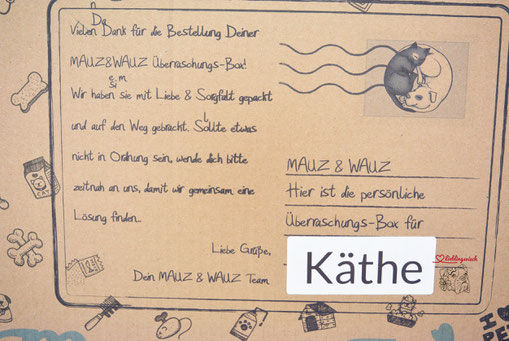 Vielen Dank für die Bestellung Deiner
MAUZ&WAUZ Überraschungs-Box!
Wir haben sie mit Liebe & Sorgfalt gepackt
und auf den Weg gebracht. Sollte etwas
nicht in Ordnung sein, wende dich bitte
zeitnah an uns, damit wir gemeinsam eine
Lösung finden...
Liebe Grüße,
Dein MAUZ & WAUZ Team
MAUZ & WAUZ
Hier ist die persönliche
Überraschungs-Box für
Käthe
CAT